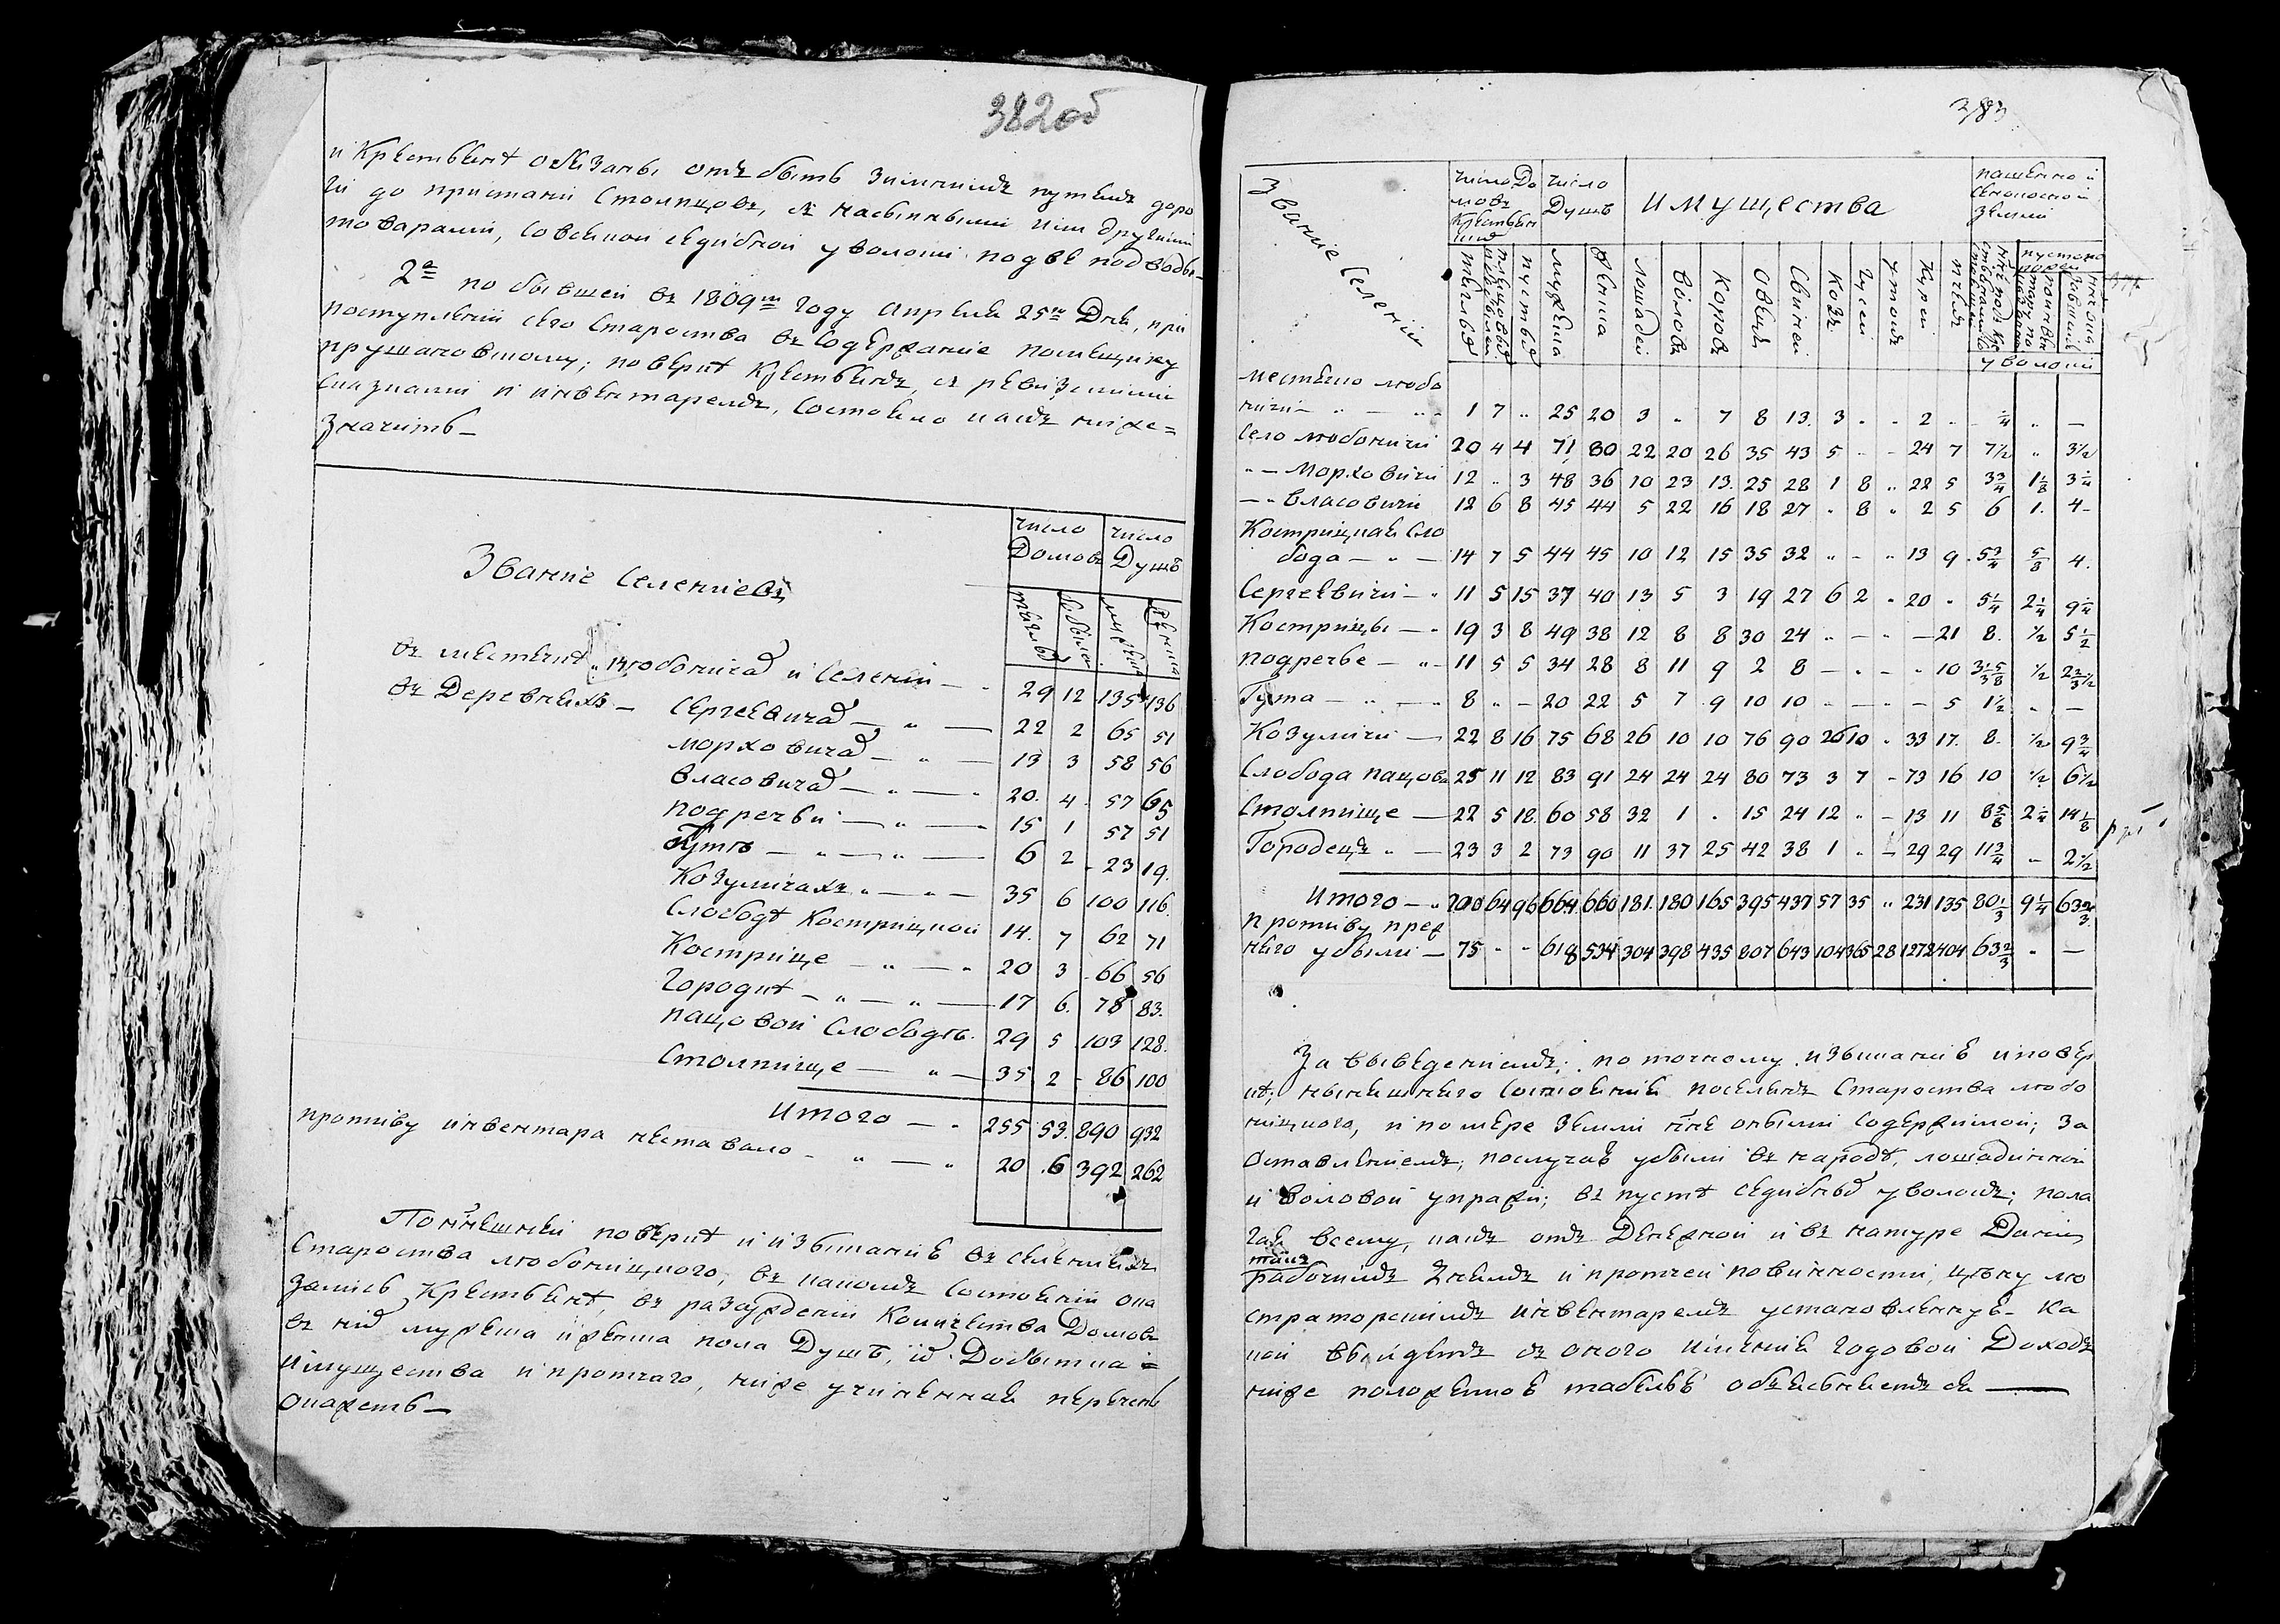 382 об
и крестьянъ обязаны отъ быть зимнимъ путемъ доро
ги до пристани Столпцовъ, съ насыпными или другими
товарами, со всякой седибной уволоки по двѣ подводы
2е по бывшей въ 1809м году Апреля 25го Дня, при
поступленіи сего Староства въ содержаніе помещику
прушановскому; поверкѣ крестьянъ, съ ревизскими
сказками и инвентаремъ, состояло какъ ниже=
значитъ —
Званіе Селеніевъ
число Домовъ
число Душъ
тяглыхъ
бобылей
мужеска
женска
въ местечкѣ Любоничахъ и Селеніи — 29 12 135 136
въ Деревняхъ — Сергеевичахъ — " — 22 2 65 51
Морховичахъ — " — 13 3 58 56
Власовичахъ — " — 20. 4. 57 65
Подречьи — " — 15 1 57 51
Гутѣ — " — " — 6 2 23 19.
Козуличахъ " — " — 35 6 100 116.
Слободѣ Костріцкой 14. 7 62 71
Костріце — " — " 20 3 66 56
Городцѣ — " — " — 17 6. 78 83.
Пацовой Слободѣ. 29 5 103 128.
Столпище — " — 35 2 86 100
Итого — 255 53. 890 932
противу инвентара неставало — " — " 20 .6 392 262
По нынешней поверкѣ и изысканію въ селеніяхъ
Староства любоницкого, въ какомъ состояніи ока
зались крестьянѣ, въ разсужденіи количества Домовъ
въ нихъ мужеска и женска пола Душъ, ихъ Добытка =
имущества и протчаго, ниже учиненная перечень
окажетъ —
383
Званіе Селеній
число Домовъ крестьянскихъ
число Душъ
имущества
пашенной и сенокосной земли
тяглыхъ
пустыхъ
мужеска
женска
Лошадей
воловъ
коровъ
Овецъ
Свиней
Козъ
Гусей
утокъ
Курей
пчелъ
уволоки
местечко любо
ничи — " — " 1 7 " 25 20 3 " 7 8 13. 3 " " 2 " ¼ " —
Село любоничи 20 4 4 71 80 22 20 26 35 43 5 " — 24 7 7½ " 3½
" — Морховичи 12 " 3 48 36 10 23 13. 25 28 1 8 " 22 5 3¾ 1⅛ 3¼
— " Власовичи 12 6 8 45 44 5 22 16 18 27 " 8 " 2 5 6 1. 4 —
Костріцкая Сло
бода — " — 14 7 5 44 45 10 12 15 35 32 " — " 13 9. 5¾ ⅝ 4.
Сергеевичи — " 11 5 15 37 40 13 5 3 19 27 6 2 " 20 " 5¼ 2¼ 9¼
Костріцы — " 19 3 8 49 38 12 8 8 30 24 " — " — 21 8. ½ 5½
Подречье — " — 11 5 5 34 28 8 11 9 2 8 — " — " 10
Гута — " — " 8 " — 20 22 5 7 9 10 10 " — " — 5 1½ " —
Козуличи — 22 8 16 75 68 26 10 10 76 90 26 10 " 33 17. 8. ½ 9¾
Слобода пацова 25 11 12 83 91 24 24 24 80 73 3 7 — 73 16 10 ½ 6½
Столпище — 22 5 18. 60 58 32 1 . 15 24 12 " — 13 11 8⅝ 2¼ 14⅛
Городецъ " — 23 3 2 73 90 11 37 25 42 38 1 " — 29 29 11¾ — 2½
Итого — " 200 64 96 664 660 181. 180 165 395 437 57 35 " 231 135 80⅓ 9¼ 63⅔
противу преж
няго убыли — 75 " — 618 534 304 398 435 807 643 104 365 28 1272 404 63⅔ " —
За выведеніемъ, по точному изысканію и повер
кѣ, нынешняго состоянія поселянъ Староства любо
ницкого, и по мере земли нне оными содержимой; за
оставленіемъ, по случаю убыли въ народѣ, лошадинной
и воловой упражи; въ пустѣ седибныхъ уволокъ; пола
гая всему, какъ отъ Денежной и въ натуре Дани,
такъ
рабочимъ Днямъ и протчей повинности, цѣну лю
страторскимъ инвентаремъ установленную. Ка
кой выйдетъ съ оного именія годовой Доходъ
ниже положенною табелью объясняется —